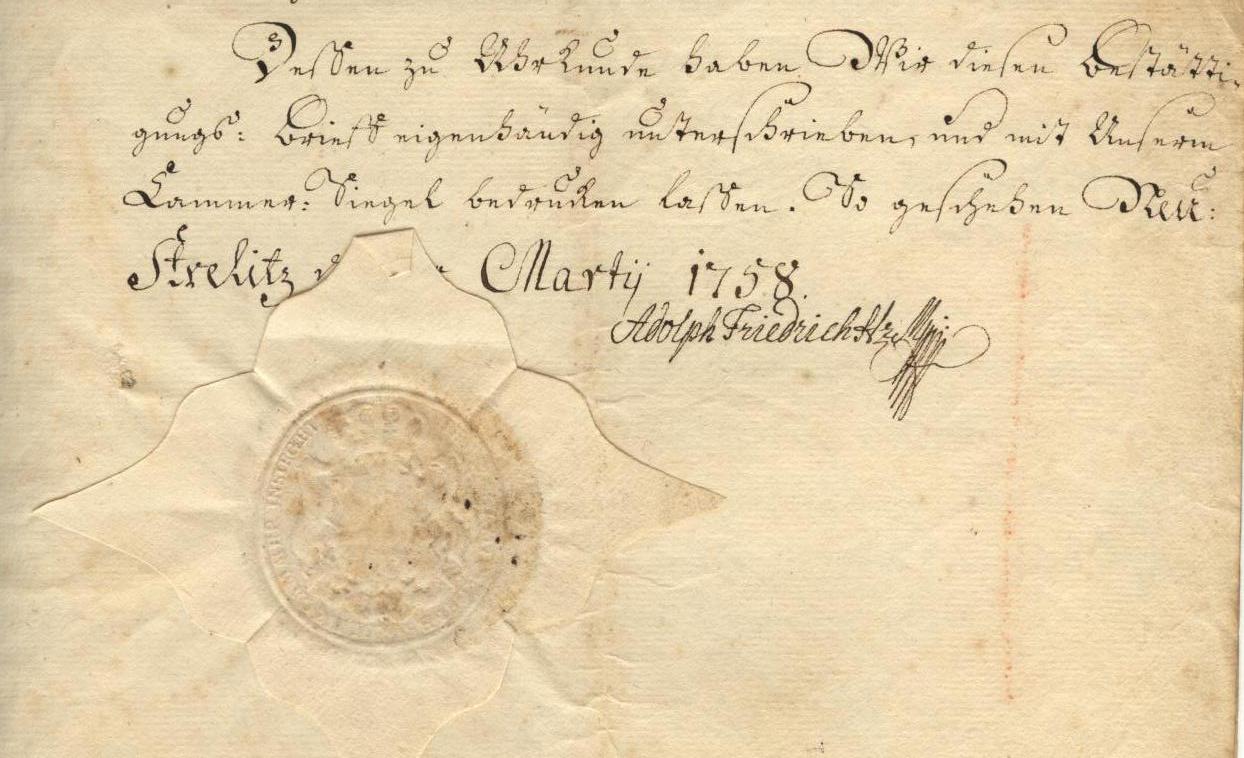 Dessen zu Uhrkunde haben Wir diesen Bestätti-
gungs: Brieff eigenhändig unterschrieben, und mit Unserm
Cammer: Siegel bedrucken lassen. So geschehen Neu:
Strelitz Martij 1758.
Adolph Friedrich